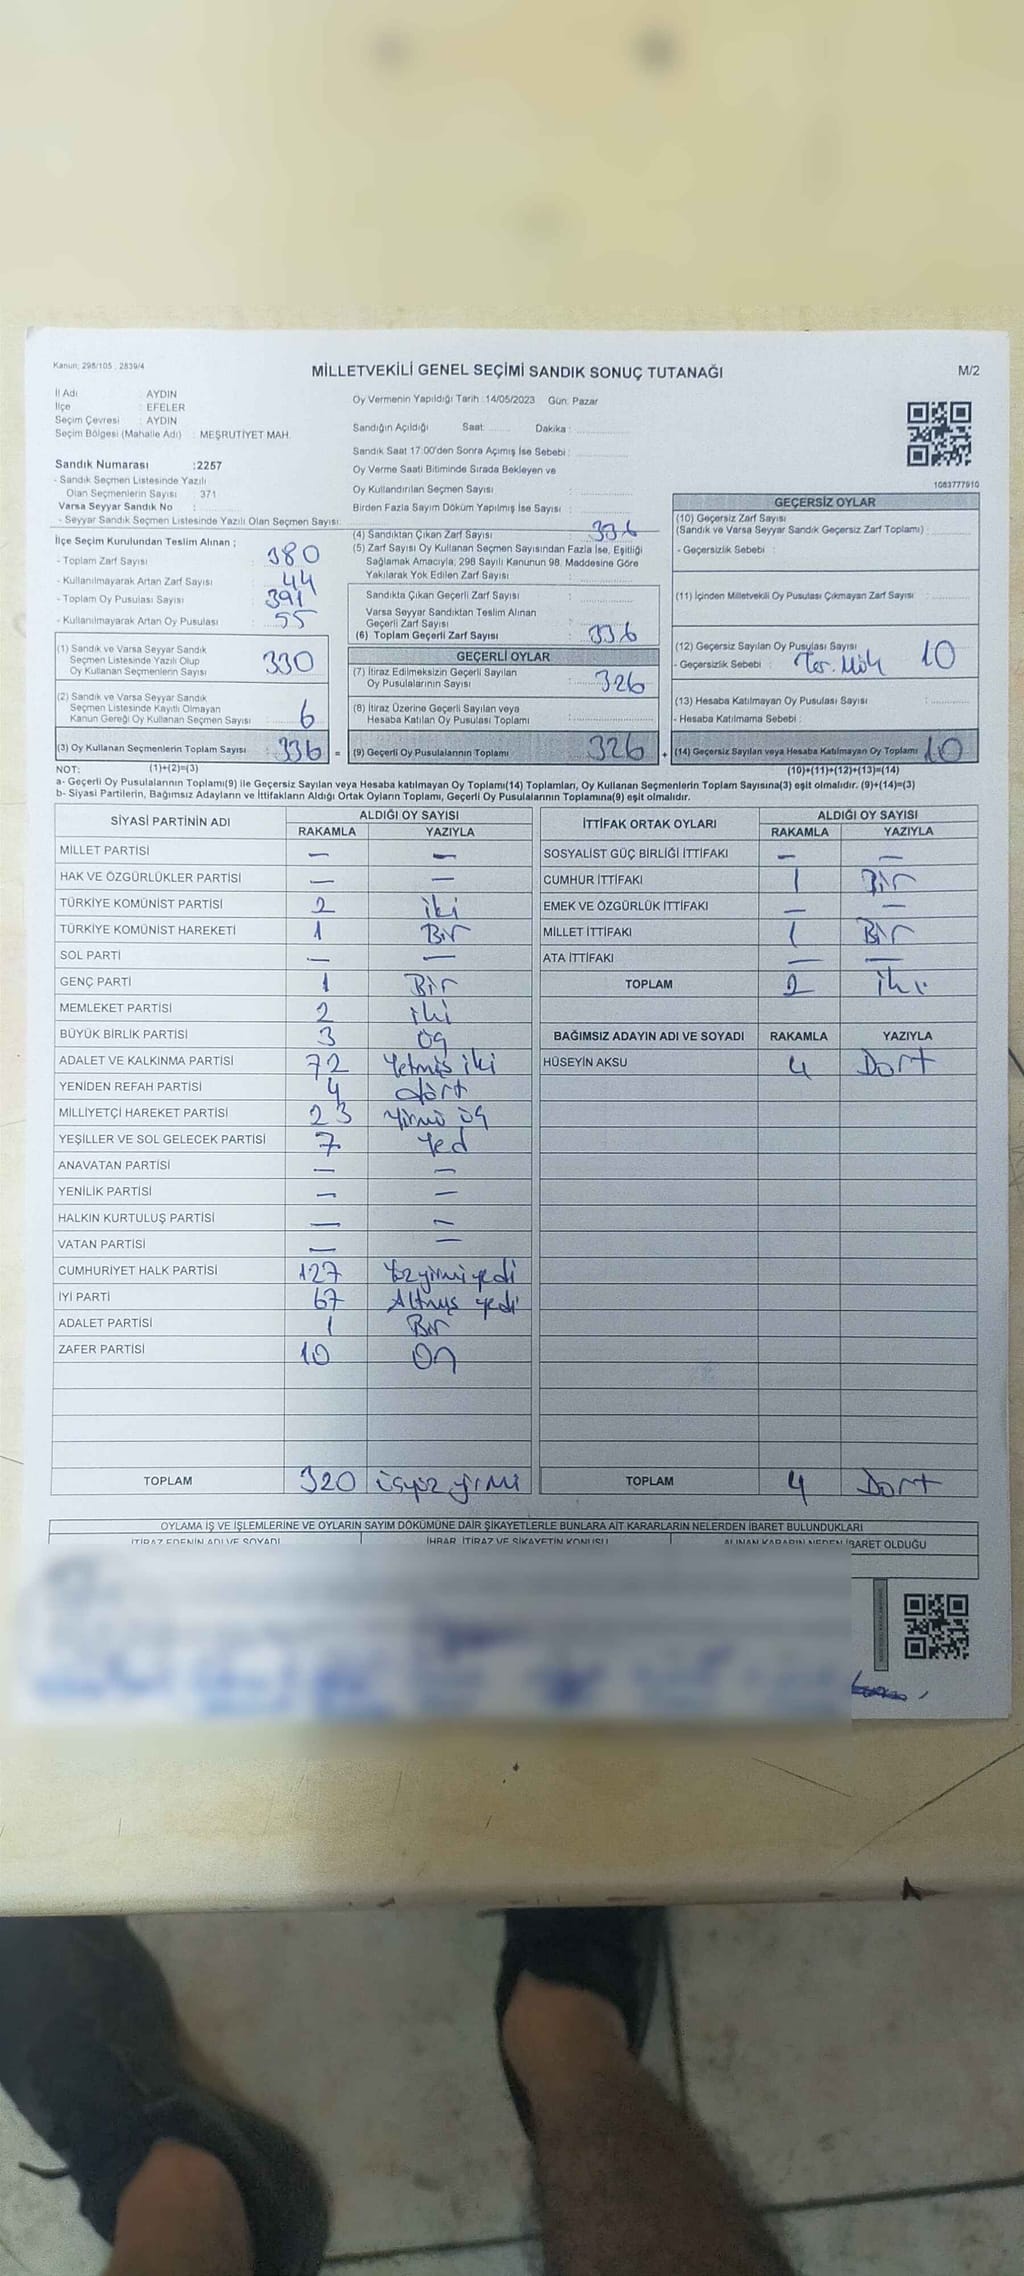 Kanun: 298/105 , 2839/4
MİLLETVEKİLİ GENEL SEÇİMİ SANDIK SONUÇ TUTANAĞI
M/2
İl Adı : AYDIN
İlçe : EFELER
Seçim Çevresi : AYDIN
Seçim Bölgesi (Mahalle Adı) : MEŞRUTİYET MAH.
Sandık Numarası :2257
- Sandık Seçmen Listesinde Yazılı
Olan Seçmenlerin Sayısı : 371
Varsa Seyyar Sandık No :
- Seyyar Sandık Seçmen Listesinde Yazılı Olan Seçmen Sayısı:
Oy Vermenin Yapıldığı Tarih :14/05/2023 Gün: Pazar
Sandığın Açıldığı Saat: Dakika :
Sandık Saat 17:00'den Sonra Açımış İse Sebebi :
Oy Verme Saati Bitiminde Sırada Bekleyen ve
Oy Kullandırılan Seçmen Sayısı :
Birden Fazla Sayım Döküm Yapılmış İse Sayısı :
1083777910
İlçe Seçim Kurulundan Teslim Alınan ;
- Toplam Zarf Sayısı : 380
- Kullanılmayarak Artan Zarf Sayısı : 44
- Toplam Oy Pusulası Sayısı : 391
- Kullanılmayarak Artan Oy Pusulası : 55
(1) Sandık ve Varsa Seyyar Sandık
Seçmen Listesinde Yazılı Olup
Oy Kullanan Seçmenlerin Sayısı : 330
(2) Sandık ve Varsa Seyyar Sandık
Seçmen Listesinde Kayıtlı Olmayan
Kanun Gereği Oy Kullanan Seçmen Sayısı : 6
(3) Oy Kullanan Seçmenlerin Toplam Sayısı : 336 =
(1)+(2)=(3)
(4) Sandıktan Çıkan Zarf Sayısı : 336
(5) Zarf Sayısı Oy Kullanan Seçmen Sayısından Fazla İse, Eşitliği
Sağlamak Amacıyla, 298 Sayılı Kanunun 98. Maddesine Göre
Yakılarak Yok Edilen Zarf Sayısı :
Sandıkta Çıkan Geçerli Zarf Sayısı :
Varsa Seyyar Sandıktan Teslim Alınan
Geçerli Zarf Sayısı :
(6) Toplam Geçerli Zarf Sayısı : 336
GEÇERLİ OYLAR
(7) İtiraz Edilmeksizin Geçerli Sayılan
Oy Pusulalarının Sayısı : 326
(8) İtiraz Üzerine Geçerli Sayılan veya
Hesaba Katılan Oy Pusulası Toplamı :
(9) Geçerli Oy Pusulalarının Toplamı : 326 +
GEÇERSİZ OYLAR
(10) Geçersiz Zarf Sayısı
(Sandık ve Varsa Seyyar Sandık Geçersiz Zarf Toplamı) :
- Geçersizlik Sebebi :
(11) İçinden Milletvekili Oy Pusulası Çıkmayan Zarf Sayısı :
(12) Geçersiz Sayılan Oy Pusulası Sayısı : 10
- Geçersizlik Sebebi :
(13) Hesaba Katılmayan Oy Pusulası Sayısı :
- Hesaba Katılmama Sebebi :
(14) Geçersiz Sayılan veya Hesaba Katılmayan Oy Toplamı : 10
(10)+(11)+(12)+(13)=(14)
NOT:
a- Geçerli Oy Pusulalarının Toplamı(9) ile Geçersiz Sayılan veya Hesaba katılmayan Oy Toplamı(14) Toplamları, Oy Kullanan Seçmenlerin Toplam Sayısına(3) eşit olmalıdır. (9)+(14)=(3)
b- Siyasi Partilerin, Bağımsız Adayların ve İttifakların Aldığı Ortak Oyların Toplamı, Geçerli Oy Pusulalarının Toplamına(9) eşit olmalıdır.
SİYASİ PARTİNİN ADI ALDIĞI OY SAYISI
RAKAMLA YAZIYLA
MİLLET PARTİSİ — —
HAK VE ÖZGÜRLÜKLER PARTİSİ — —
TÜRKİYE KOMÜNİST PARTİSİ 2 iki
TÜRKİYE KOMÜNİST HAREKETİ 1 Bir
SOL PARTİ — —
GENÇ PARTİ 1 Bir
MEMLEKET PARTİSİ 2 iki
BÜYÜK BİRLİK PARTİSİ 3 üç
ADALET VE KALKINMA PARTİSİ 72 Yetmiş iki
YENİDEN REFAH PARTİSİ 4 dört
MİLLİYETÇİ HAREKET PARTİSİ 23 Yirmi üç
YEŞİLLER VE SOL GELECEK PARTİSİ 7 Yed
ANAVATAN PARTİSİ — —
YENİLİK PARTİSİ — —
HALKIN KURTULUŞ PARTİSİ — —
VATAN PARTİSİ — —
CUMHURİYET HALK PARTİSİ 127 Yüzyirmiyedi
İYİ PARTİ 67 Altmış yedi
ADALET PARTİSİ 1 Bir
ZAFER PARTİSİ 10 On
TOPLAM 320 üçyüz yirmi
İTTİFAK ORTAK OYLARI ALDIĞI OY SAYISI
RAKAMLA YAZIYLA
SOSYALİST GÜÇ BİRLİĞİ İTTİFAKI — —
CUMHUR İTTİFAKI 1 Bir
EMEK VE ÖZGÜRLÜK İTTİFAKI — —
MİLLET İTTİFAKI 1 Bir
ATA İTTİFAKI — —
TOPLAM 2 iki
BAĞIMSIZ ADAYIN ADI VE SOYADI RAKAMLA YAZIYLA
HÜSEYİN AKSU 4 Dort
TOPLAM 4 Dort
OYLAMA İŞ VE İŞLEMLERİNE VE OYLARIN SAYIM DÖKÜMÜNE DAİR ŞİKAYETLERLE BUNLARA AİT KARARLARIN NELERDEN İBARET BULUNDUKLARI
İTİRAZ EDENİN ADI VE SOYADI İHBAR, İTİRAZ VE ŞİKAYETİN KONUSU ALINAN KARARIN NEDEN İBARET OLDUĞU